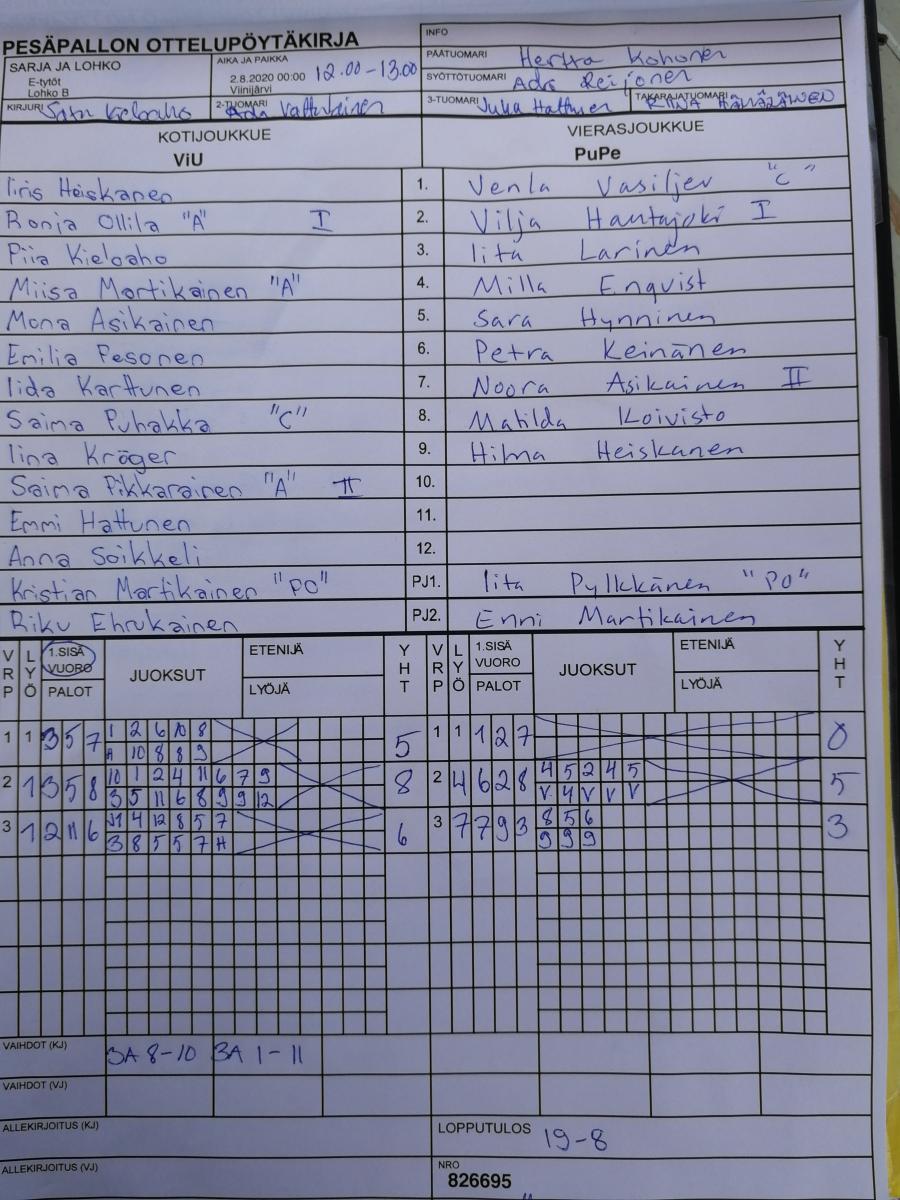 PESÄPALLON OTTELUPÖYTÄKIRJA
INFO
SARJA JA LOHKO
E-tytöt
Lohko B
AIKA JA PAIKKA
2.8.2020 00:00 12.00-13.00
Viinijärvi
PÄÄTUOMARI Hertta Kohonen
SYÖTTÖTUOMARI Ada Reijonen
KIRJURI Satu Kieloaho
2-TUOMARI Ada Vattukainen
3-TUOMARI Juha Hattunen
TAKARAJATUOMARI RIINA HÄMÄLÄINEN
KOTIJOUKKUE
ViU
VIERASJOUKKUE
PuPe
Iiris Heiskanen 1. Venla Vasiljev "C"
Ronja Ollila "A" I 2. Vilja Hautajoki I
Piia Kieloaho 3. Iita Larinen
Miisa Martikainen "A" 4. Milla Enqvist
Mona Asikainen 5. Sara Hynninen
Emilia Pesonen 6. Petra Keinänen
Iida Karttunen 7. Noora Asikainen II
Saima Puhakka "C" 8. Matilda Koivisto
Iina Kröger 9. Hilma Heiskanen
Saima Pikkarainen "A" II 10.
Emmi Hattunen 11.
Anna Soikkeli 12.
Kristian Martikainen "PO" PJ1. Iita Pylkkänen "PO"
Riku Ehrukainen PJ2. Enni Martikainen
VRP LYÖ 1.SISÄ VUORO PALOT JUOKSUT ETENIJÄ LYÖJÄ YHT VRP LYÖ 1.SISÄ VUORO PALOT JUOKSUT ETENIJÄ LYÖJÄ YHT
1 1 3 5 7 1 2 6 10 8 5 1 1 1 2 7 0
A 10 8 8 9
2 1 3 5 8 10 1 2 4 11 6 7 9 8 2 4 6 2 8 4 5 2 4 5 5
3 5 11 6 8 9 9 12 V 4 V V V
3 1 2 11 6 J1 4 12 8 5 7 6 3 7 7 9 3 8 5 6 3
3 8 5 5 7 A 9 9 9
VAIHDOT (KJ) 3A 8-10 3A 1-11
VAIHDOT (VJ)
ALLEKIRJOITUS (KJ)
LOPPUTULOS 19-8
ALLEKIRJOITUS (VJ)
NRO
826695